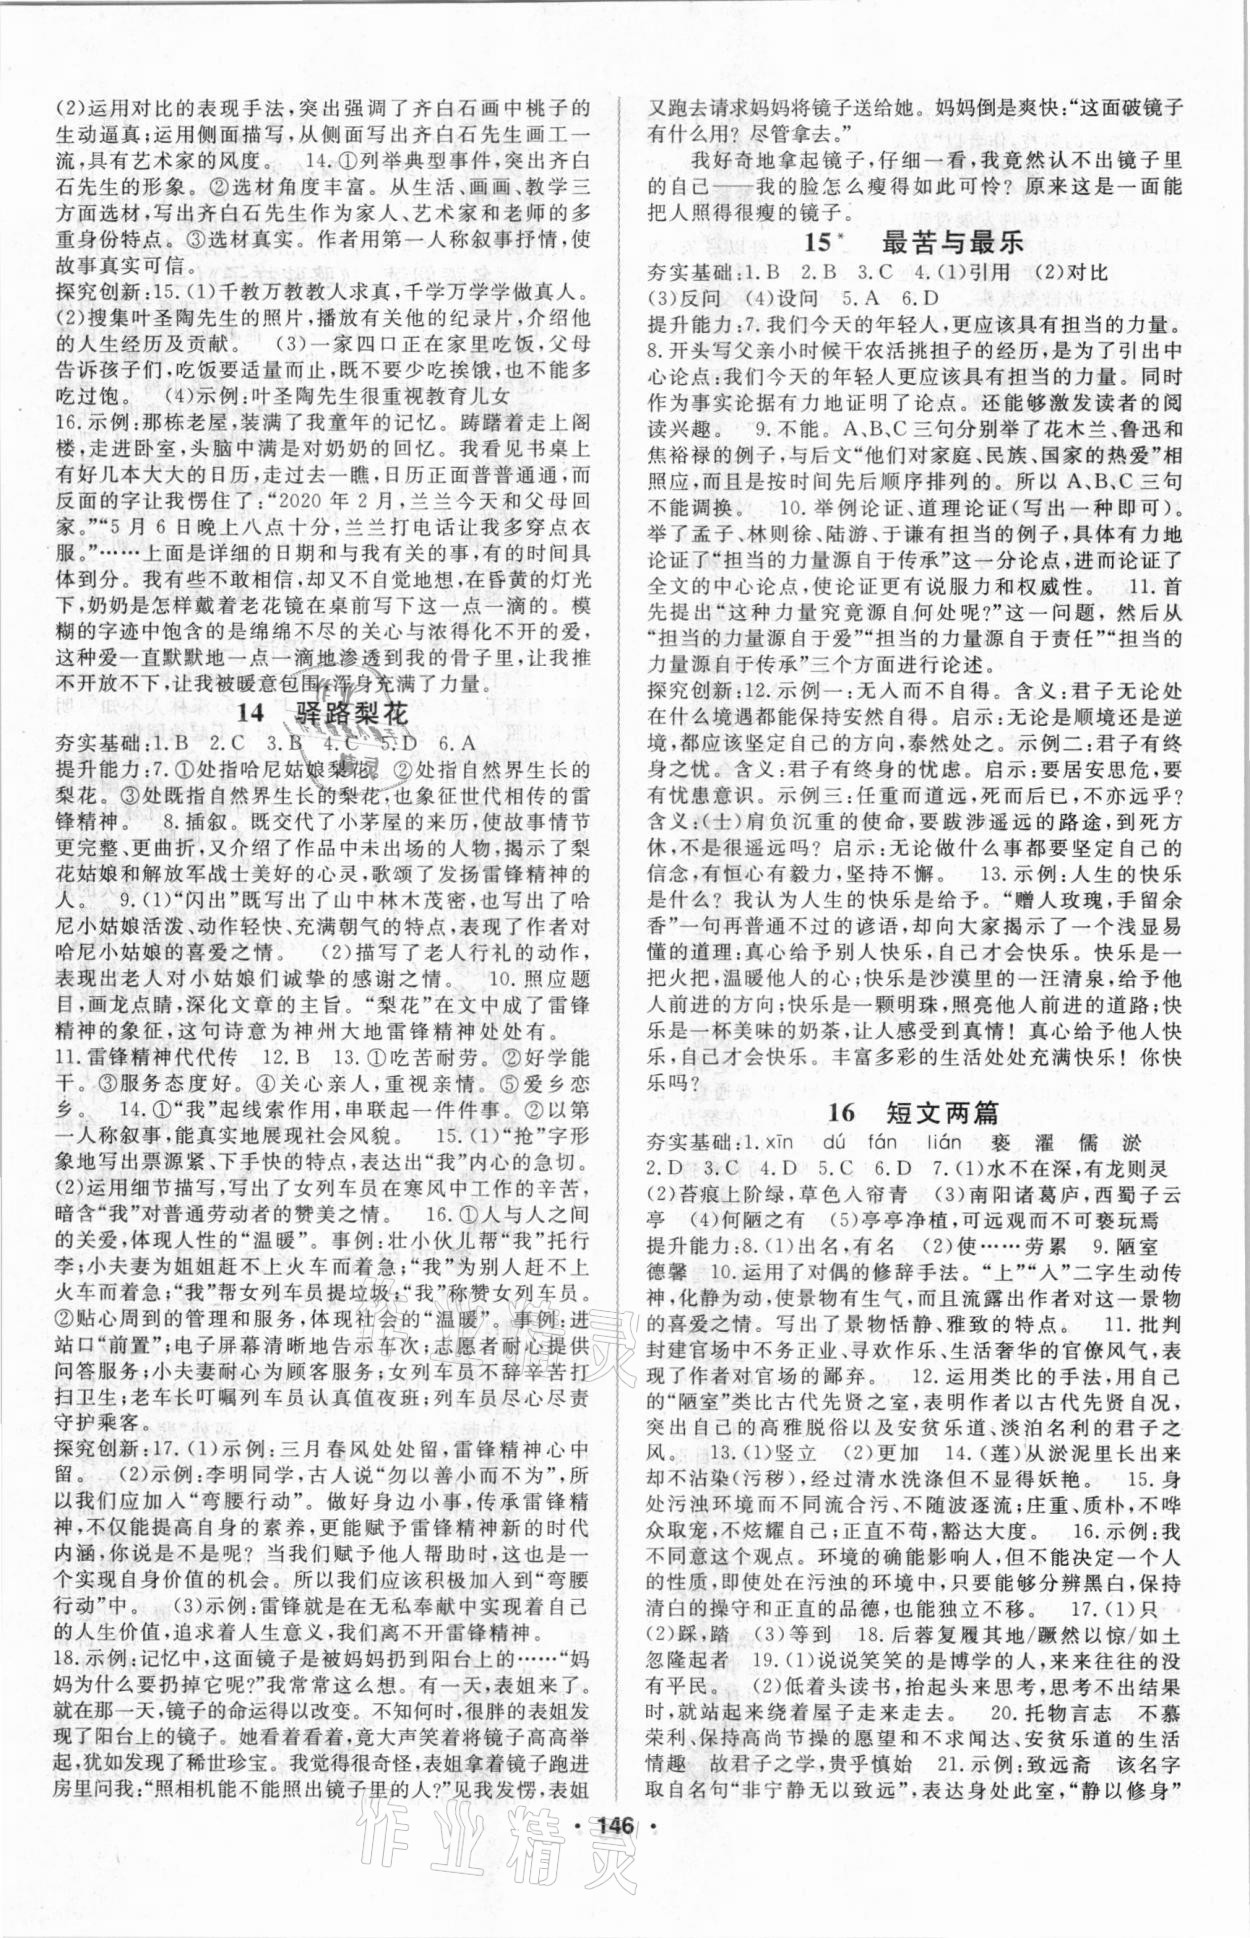 (2)运用对比的表现手法,突出强调了齐白石画中桃子的
生动逼真;运用侧面描写,从侧面写出齐白石先生画工一
流,具有艺术家的风度。　14.①列举典型事件,突出齐白
石先生的形象。②选材角度丰富。从生活、画画、教学三
方面选材,写出齐白石先生作为家人、艺术家和老师的多
重身份特点。③选材真实。作者用第一人称叙事抒情,使
故事真实可信。
探究创新:15.(1)千教万教教人求真,千学万学学做真人。
(2)搜集叶圣陶先生的照片,播放有关他的纪录片,介绍他
的人生经历及贡献。　(3)一家四口正在家里吃饭,父母
告诉孩子们,吃饭要适量而止,既不要少吃挨饿,也不能多
吃过饱。　(4)示例:叶圣陶先生很重视教育儿女
16.示例:那栋老屋,装满了我童年的记忆。踌躇着走上阁
楼,走进卧室,头脑中满是对奶奶的回忆。我看见书桌上
有好几本大大的日历,走过去一瞧,日历正面普普通通,而
反面的字让我愣住了:“2020 年 2 月,兰兰今天和父母回
家。”“5 月 6 日晚上八点十分,兰兰打电话让我多穿点衣
服。”……上面是详细的日期和与我有关的事,有的时间具
体到分。我有些不敢相信,却又不自觉地想,在昏黄的灯光
下,奶奶是怎样戴着老花镜在桌前写下这一点一滴的。模
糊的字迹中饱含的是绵绵不尽的关心与浓得化不开的爱,
这种爱一直默默地一点一滴地渗透到我的骨子里,让我推
不开放不下,让我被暖意包围,浑身充满了力量。
14　驿路梨花
夯实基础:1.B　2.C　3.B　4.C　5.D　6.A
提升能力:7.①处指哈尼姑娘梨花。②处指自然界生长的
梨花。③处既指自然界生长的梨花,也象征世代相传的雷
锋精神。　8.插叙。既交代了小茅屋的来历,使故事情节
更完整、更曲折,又介绍了作品中未出场的人物,揭示了梨
花姑娘和解放军战士美好的心灵,歌颂了发扬雷锋精神的
人。　9.(1)“闪出”既写出了山中林木茂密,也写出了哈
尼小姑娘活泼、动作轻快、充满朝气的特点,表现了作者对
哈尼小姑娘的喜爱之情。　(2)描写了老人行礼的动作,
表现出老人对小姑娘们诚挚的感谢之情。　10.照应题
目,画龙点睛,深化文章的主旨。“梨花”在文中成了雷锋
精神的象征,这句诗意为神州大地雷锋精神处处有。
11.雷锋精神代代传　12.B　13.①吃苦耐劳。②好学能
干。③服务态度好。④关心亲人,重视亲情。⑤爱乡恋
乡。　14.①“我”起线索作用,串联起一件件事。②以第
一人称叙事,能真实地展现社会风貌。　15.(1)“抢”字形
象地写出票源紧、下手快的特点,表达出“我”内心的急切。
(2)运用细节描写,写出了女列车员在寒风中工作的辛苦,
暗含“我”对普通劳动者的赞美之情。　16.①人与人之间
的关爱,体现人性的“温暖”。事例:壮小伙儿帮“我”托行
李;小夫妻为姐姐赶不上火车而着急;“我”为别人赶不上
火车而着急;“我”帮女列车员提垃圾;“我”称赞女列车员。
②贴心周到的管理和服务,体现社会的“温暖”。事例:进
站口“前置”;电子屏幕清晰地告示车次;志愿者耐心提供
问答服务;小夫妻耐心为顾客服务;女列车员不辞辛苦打
扫卫生;老车长叮嘱列车员认真值夜班;列车员尽心尽责
守护乘客。
探究创新:17.(1)示例:三月春风处处留,雷锋精神心中
留。　(2)示例:李明同学,古人说“勿以善小而不为”,所
以我们应加入“弯腰行动”。做好身边小事,传承雷锋精
神,不仅能提高自身的素养,更能赋予雷锋精神新的时代
内涵,你说是不是呢？当我们赋予他人帮助时,这也是一
个实现自身价值的机会。所以我们应该积极加入到“弯腰
行动”中。　(3)示例:雷锋就是在无私奉献中实现着自己
的人生价值,追求着人生意义,我们离不开雷锋精神。
18.示例:记忆中,这面镜子是被妈妈扔到阳台上的……“妈
妈为什么要扔掉它呢?”我常常这么想。有一天,表姐来了。
那一天,镜子的命运得以改变。不知何时,很胖的表姐发
现了阳台上的镜子。她看着看着,竟大声笑着将镜子高高举
起,犹如发现了稀世珍宝。我觉得很奇怪,表姐拿着镜子跑进
房里问我:“照相机能不能照出镜子里的人?”见我发愣,表姐
又跑去请求妈妈将镜子送给她。妈妈倒是爽快:“这面破镜子
有什么用？尽管拿去。”
我好奇地拿起镜子,仔细一看,我竟然认不出镜子里
的自己——我的脸怎么瘦得如此可怜？原来这是一面能
把人照得很瘦的镜子。
15*　最苦与最乐
夯实基础:1.B　2.B　3.C　4.(1)引用　(2)对比
(3)反问　(4)设问　5.A　6.D
提升能力:7.我们今天的年轻人,更应该具有担当的力量。
8.开头写父亲小时候干农活挑担子的经历,是为了引出中
心论点:我们今天的年轻人更应该具有担当的力量。同时
作为事实论据有力地证明了论点。还能够激发读者的阅
读兴趣。　9.不能。A、B、C 三句分别举了花木兰、鲁迅和
焦裕禄的例子,与后文“他们对家庭、民族、国家的热爱”相
照应,而且是按时间先后顺序排列的。所以 A、B、C 三句
不能调换。　10.举例论证、道理论证(写出一种即可)。
举了孟子、林则徐、陆游、于谦有担当的例子,具体有力地
论证了“担当的力量源自于传承”这一分论点,进而论证了
全文的中心论点,使论证更有说服力和权威性。　11.首
先提出“这种力量究竟源自何处呢?”这一问题,然后从
“担当的力量源自于爱”“担当的力量源自于责任”“担当的
力量源自于传承”三个方面进行论述。
探究创新:12.示例一:无人而不自得。含义:君子无论处
在什么境遇都能保持安然自得。启示:无论顺境还是逆
境,都应该坚定自己的方向,泰然处之。示例二:君子有终
身之忧。含义:君子有终身的忧虑。启示:要居安思危,要
有忧患意识。示例三:任重而道远,死而后已,不亦远乎?
含义:(士)肩负沉重的使命,要跋涉遥远的路途,到死方
休,不是很遥远吗？启示:无论做什么事都要坚定自己的
信念,有恒心有毅力,坚持不懈。　13.示例:人生的快乐
是什么？我认为人生的快乐是给予。“赠人玫瑰,手留余
香”一句再普通不过的谚语,却向大家揭示了一个浅显易
懂的道理:真心给予别人快乐,自己才会快乐。快乐是一
把火把,温暖他人的心;快乐是沙漠里的一汪清泉,给予他
人前进的方向;快乐是一颗明珠,照亮他人前进的道路;快
乐是一杯美味的奶茶,让人感受到真情！真心给予他人快
乐,自己才会快乐。丰富多彩的生活处处充满快乐！你快
乐吗?
16　短文两篇
夯实基础:1.xīn　dú　fán　lián　亵　濯　儒　淤
2.D　3.C　4.D　5.C　6.D　7.(1)水不在深,有龙则灵
(2)苔痕上阶绿,草色入帘青　(3)南阳诸葛庐,西蜀子云
亭　(4)何陋之有　(5)亭亭净植,可远观而不可亵玩焉
提升能力:8.(1)出名,有名　(2)使……劳累　9.陋室
德馨　10.运用了对偶的修辞手法。“上”“入”二字生动传
神,化静为动,使景物有生气,而且流露出作者对这一景物
的喜爱之情。写出了景物恬静、雅致的特点。　11.批判
封建官场中不务正业、寻欢作乐、生活奢华的官僚风气,表
现了作者对官场的鄙弃。　12.运用类比的手法,用自己
的“陋室”类比古代先贤之室,表明作者以古代先贤自况,
突出自己的高雅脱俗以及安贫乐道、淡泊名利的君子之
风。　13.(1)竖立　(2)更加　14.(莲)从淤泥里长出来
却不沾染(污秽),经过清水洗涤但不显得妖艳。　15.身
处污浊环境而不同流合污、不随波逐流;庄重、质朴,不哗
众取宠,不炫耀自己;正直不苟,豁达大度。　16.示例:我
不同意这个观点。环境的确能影响人,但不能决定一个人
的性质,即使处在污浊的环境中,只要能够分辨黑白,保持
清白的操守和正直的品德,也能独立不移。　17.(1)只
(2)踩,踏　(3)等到　18.后蓉复履其地/蹶然以惊/如土
忽隆起者　19.(1)说说笑笑的是博学的人,来来往往的没
有平民。　(2)低着头读书,抬起头来思考,思考不出结果
时,就站起来绕着屋子走来走去。　20.托物言志　不慕
荣利、保持高尚节操的愿望和不求闻达、安贫乐道的生活
情趣　故君子之学,贵乎慎始　21.示例:致远斋　该名字
取自名句“非宁静无以致远”,表达身处此室,“静以修身”
· 146 ·
作业精灵
作业精灵